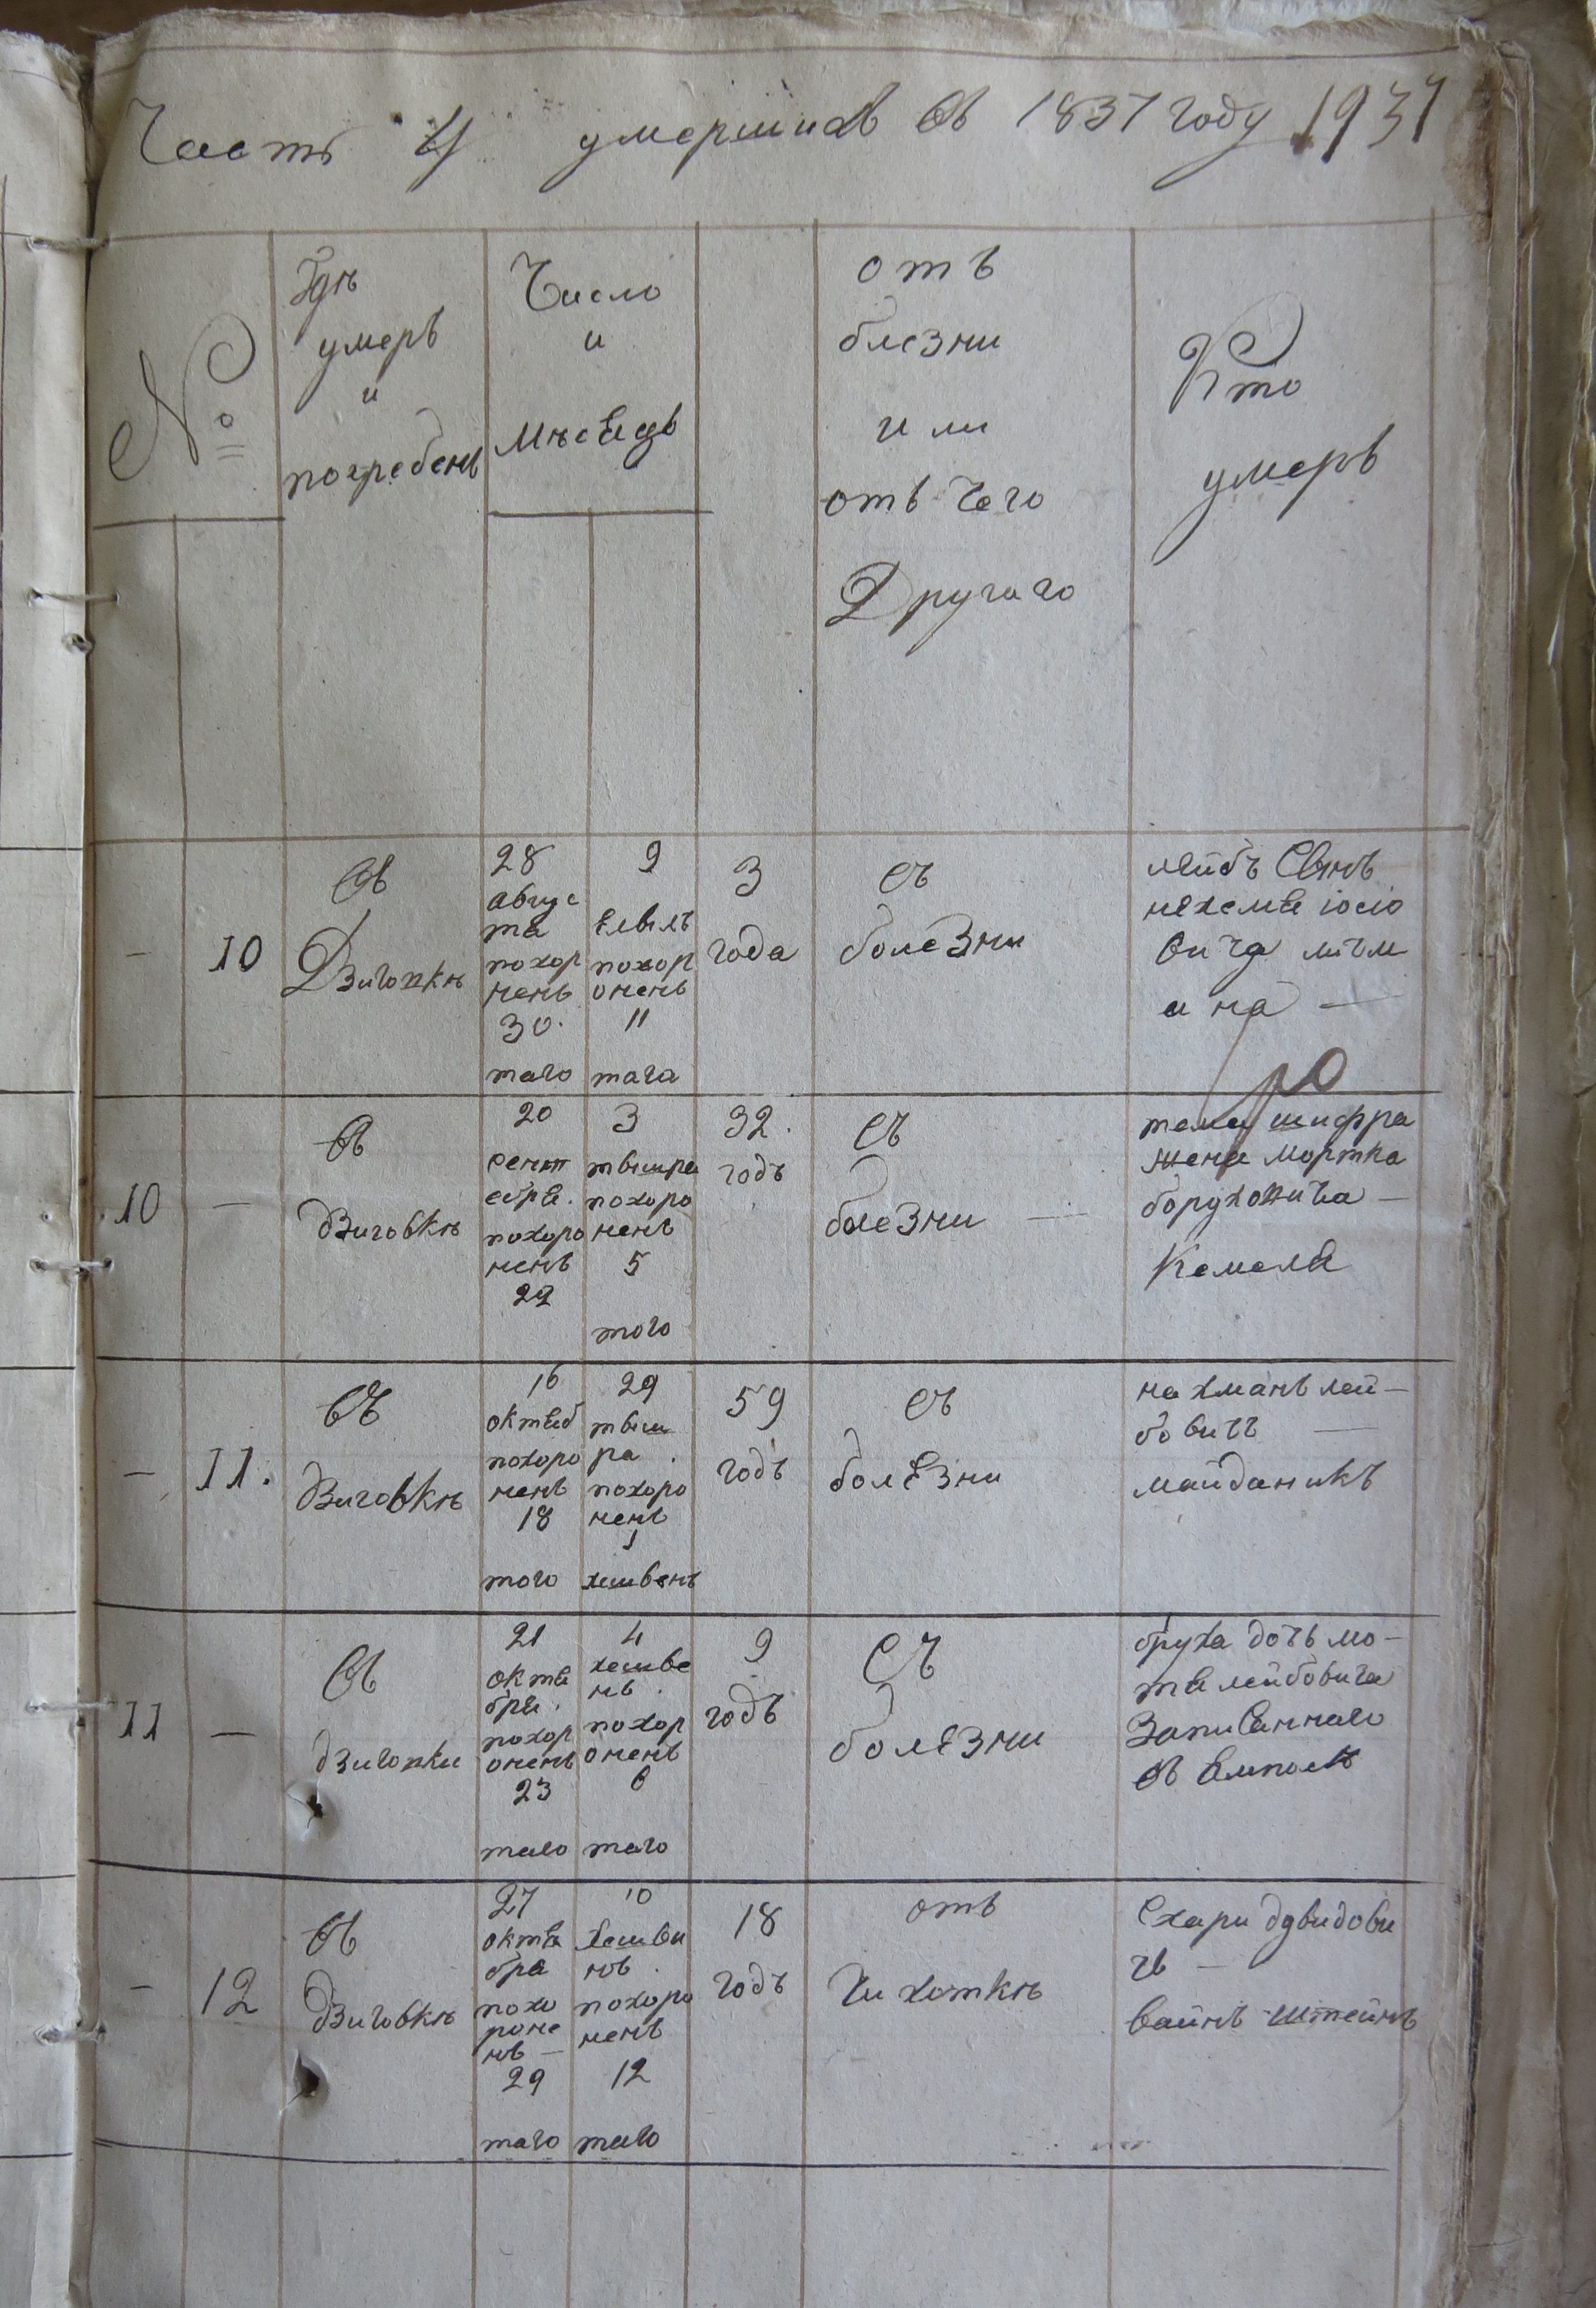 Часть умершихъ въ 1837 году 1937
№
Гдѣ
умеръ
и
погребенъ
Число
и
Мѣсецъ
отъ
блезни
или
отъ Чего
Другаго
Кто
умеръ
—
10
въ
Дзигопкѣ
28
авгус
та
похор
ненъ
30.
таго
9
елвелъ
похор
оненъ
11
тага
3
года
съ
болезни
лейбъ Сынъ
нехемя іосіо
вича
10
10
—
въ
дзиговкѣ
20
сент
ебря.
похоро
ненъ
22
3
твишра
похоро
ненъ
5
того
32.
годъ
съ
болезни —
шифра
жена мортка
боруховича —
Кемеля
—
11.
въ
дзиговкѣ
16
октяб
похоро
ненъ
18
того
29
твиш
ра.
похоро
ненъ
1
хешвенъ
59
годъ
съ
болезни
нахманъ лей—
бовичъ —
майданикъ
11
—
въ
дзигопки
21
октя
бря.
похор
оненъ
23
таго
4
хешве
нъ.
похор
оненъ
6
таго
9
годъ
съ
болезни
бруха дочь мо—
тя лейбовича
Записаннаго
въ ямполѣ
—
12
въ
дзиговкѣ
27
октя
бра
похо
роне
нъ —
29
таго
10
хешви
нъ.
похоро
ненъ
12
таго
18
годъ
отъ
Чихоткѣ
Схари двидови
чъ —
вайнъ штейнъ